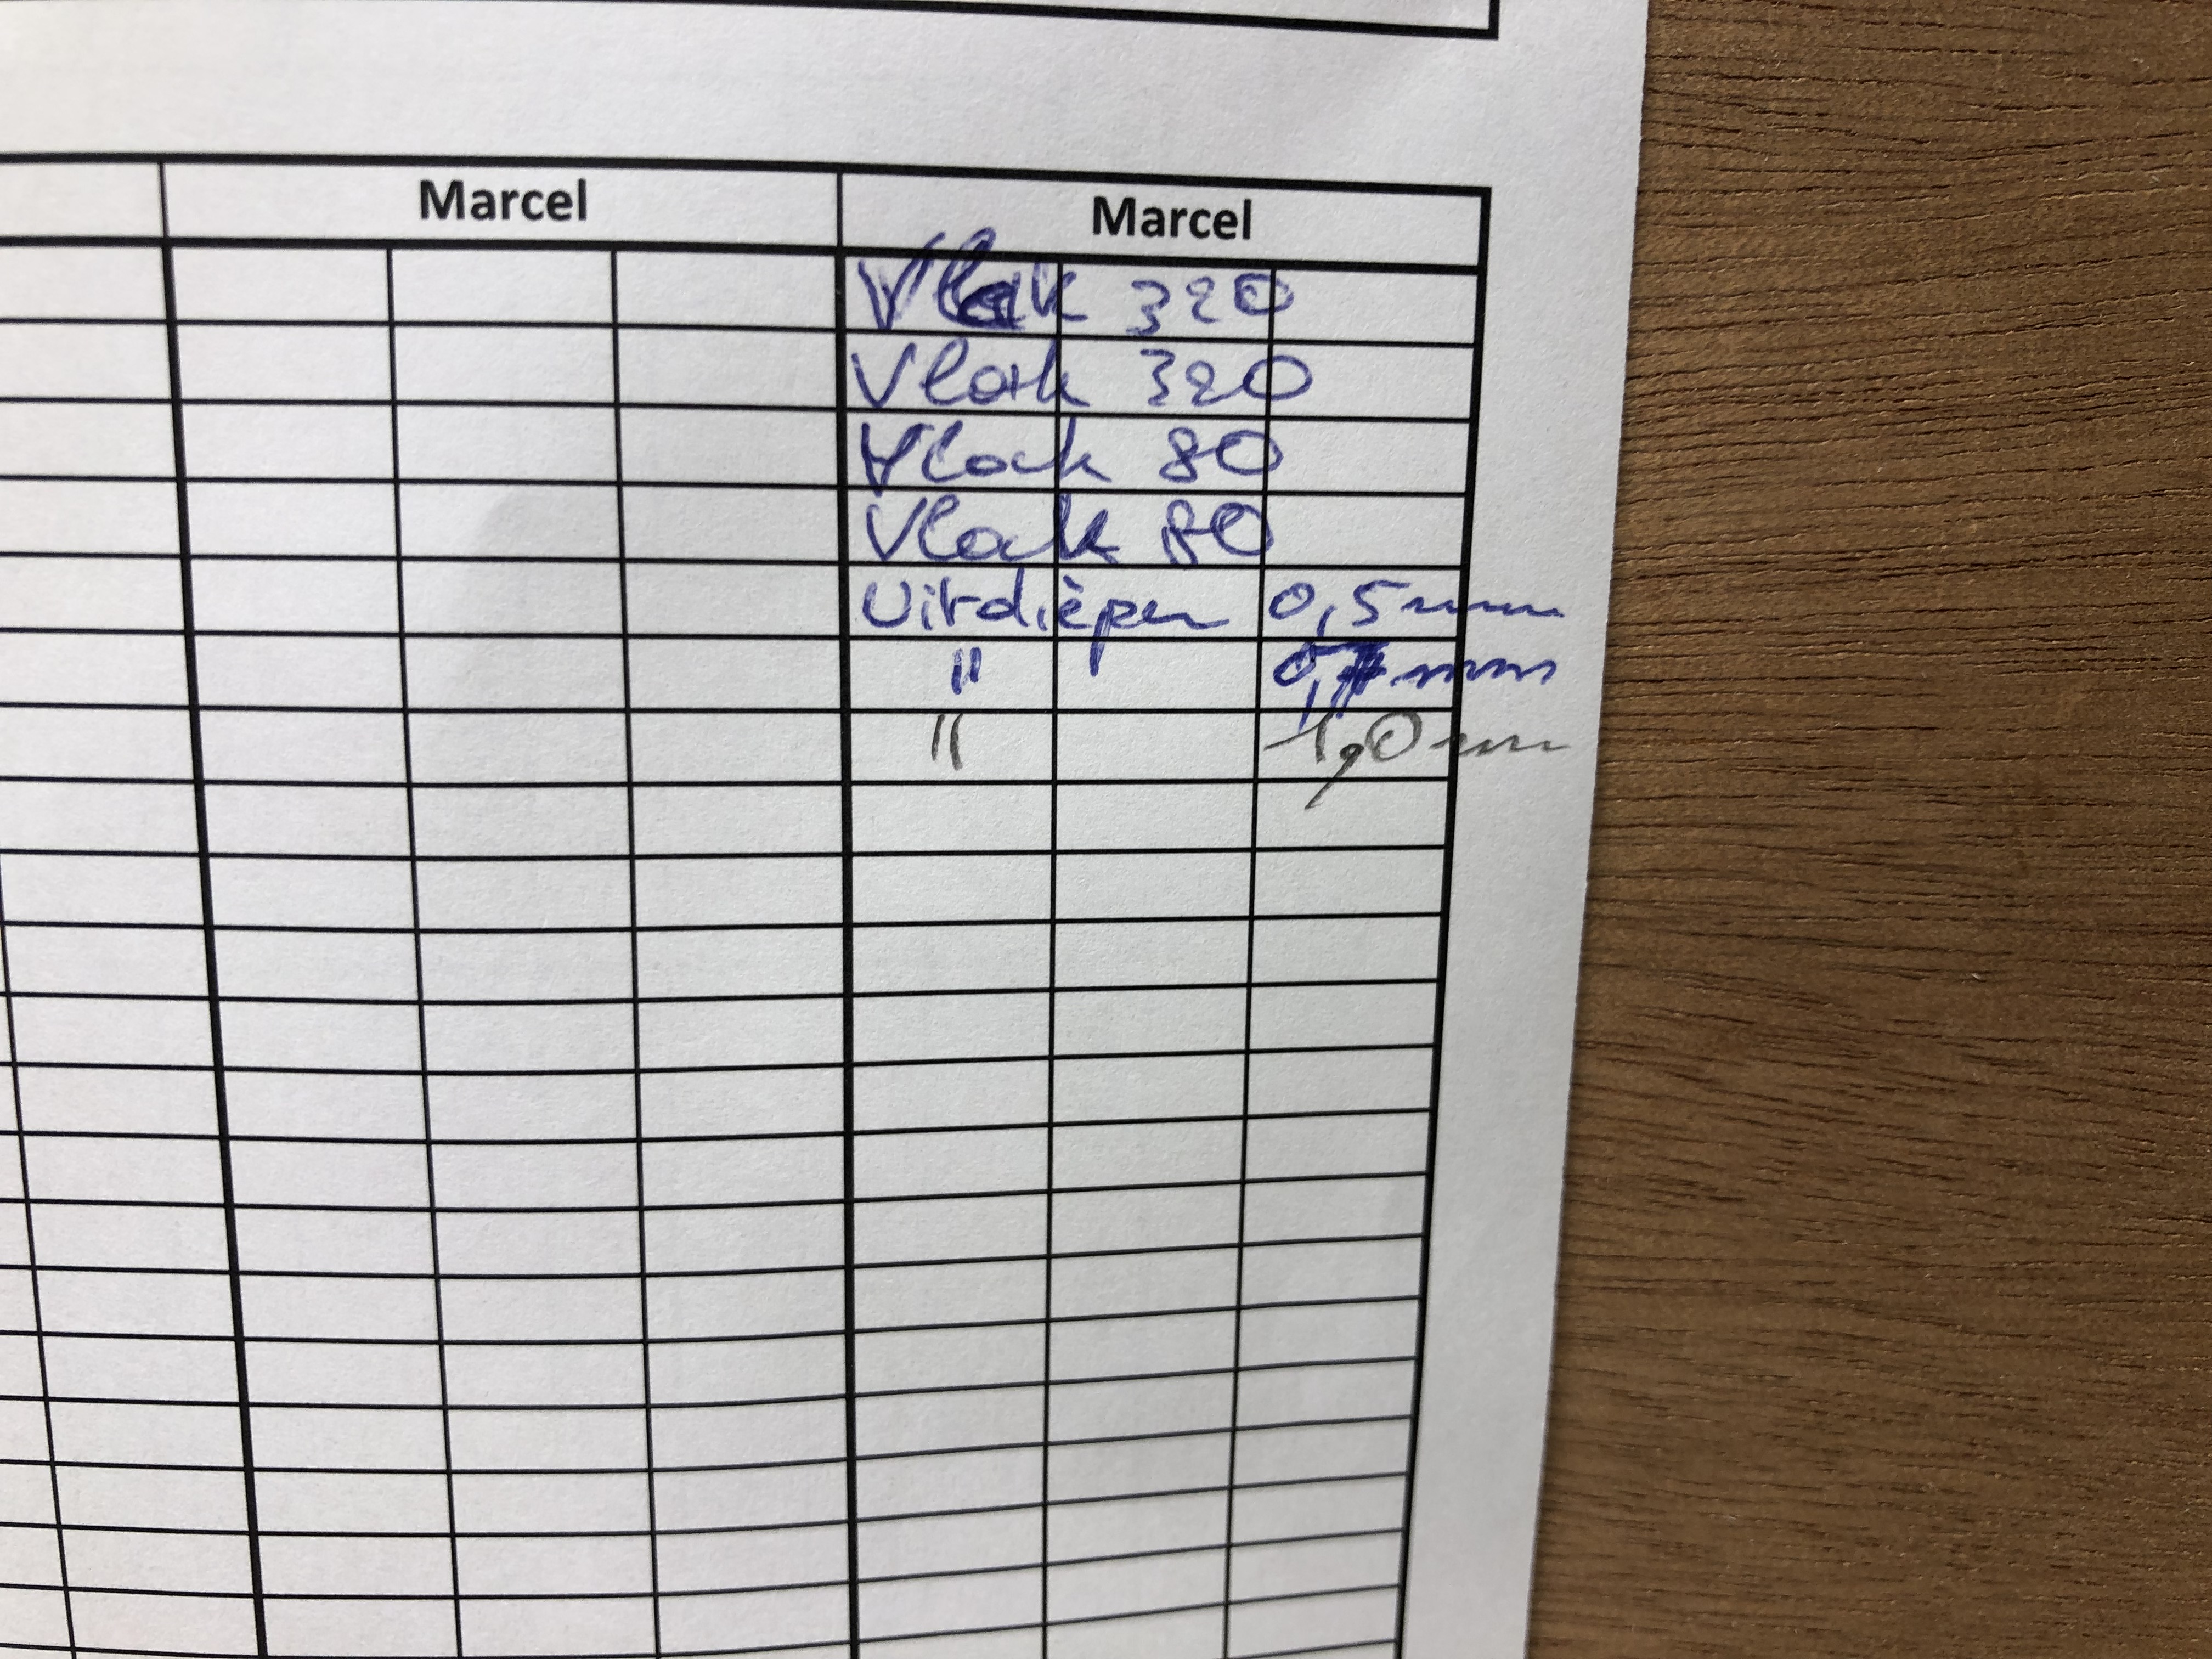 Marcel Marcel
Vlak 320
Vlak 320
Vlak 80
Vlak 80
Uitdiepen 0,5 mm
" mm
" 1,0 mm